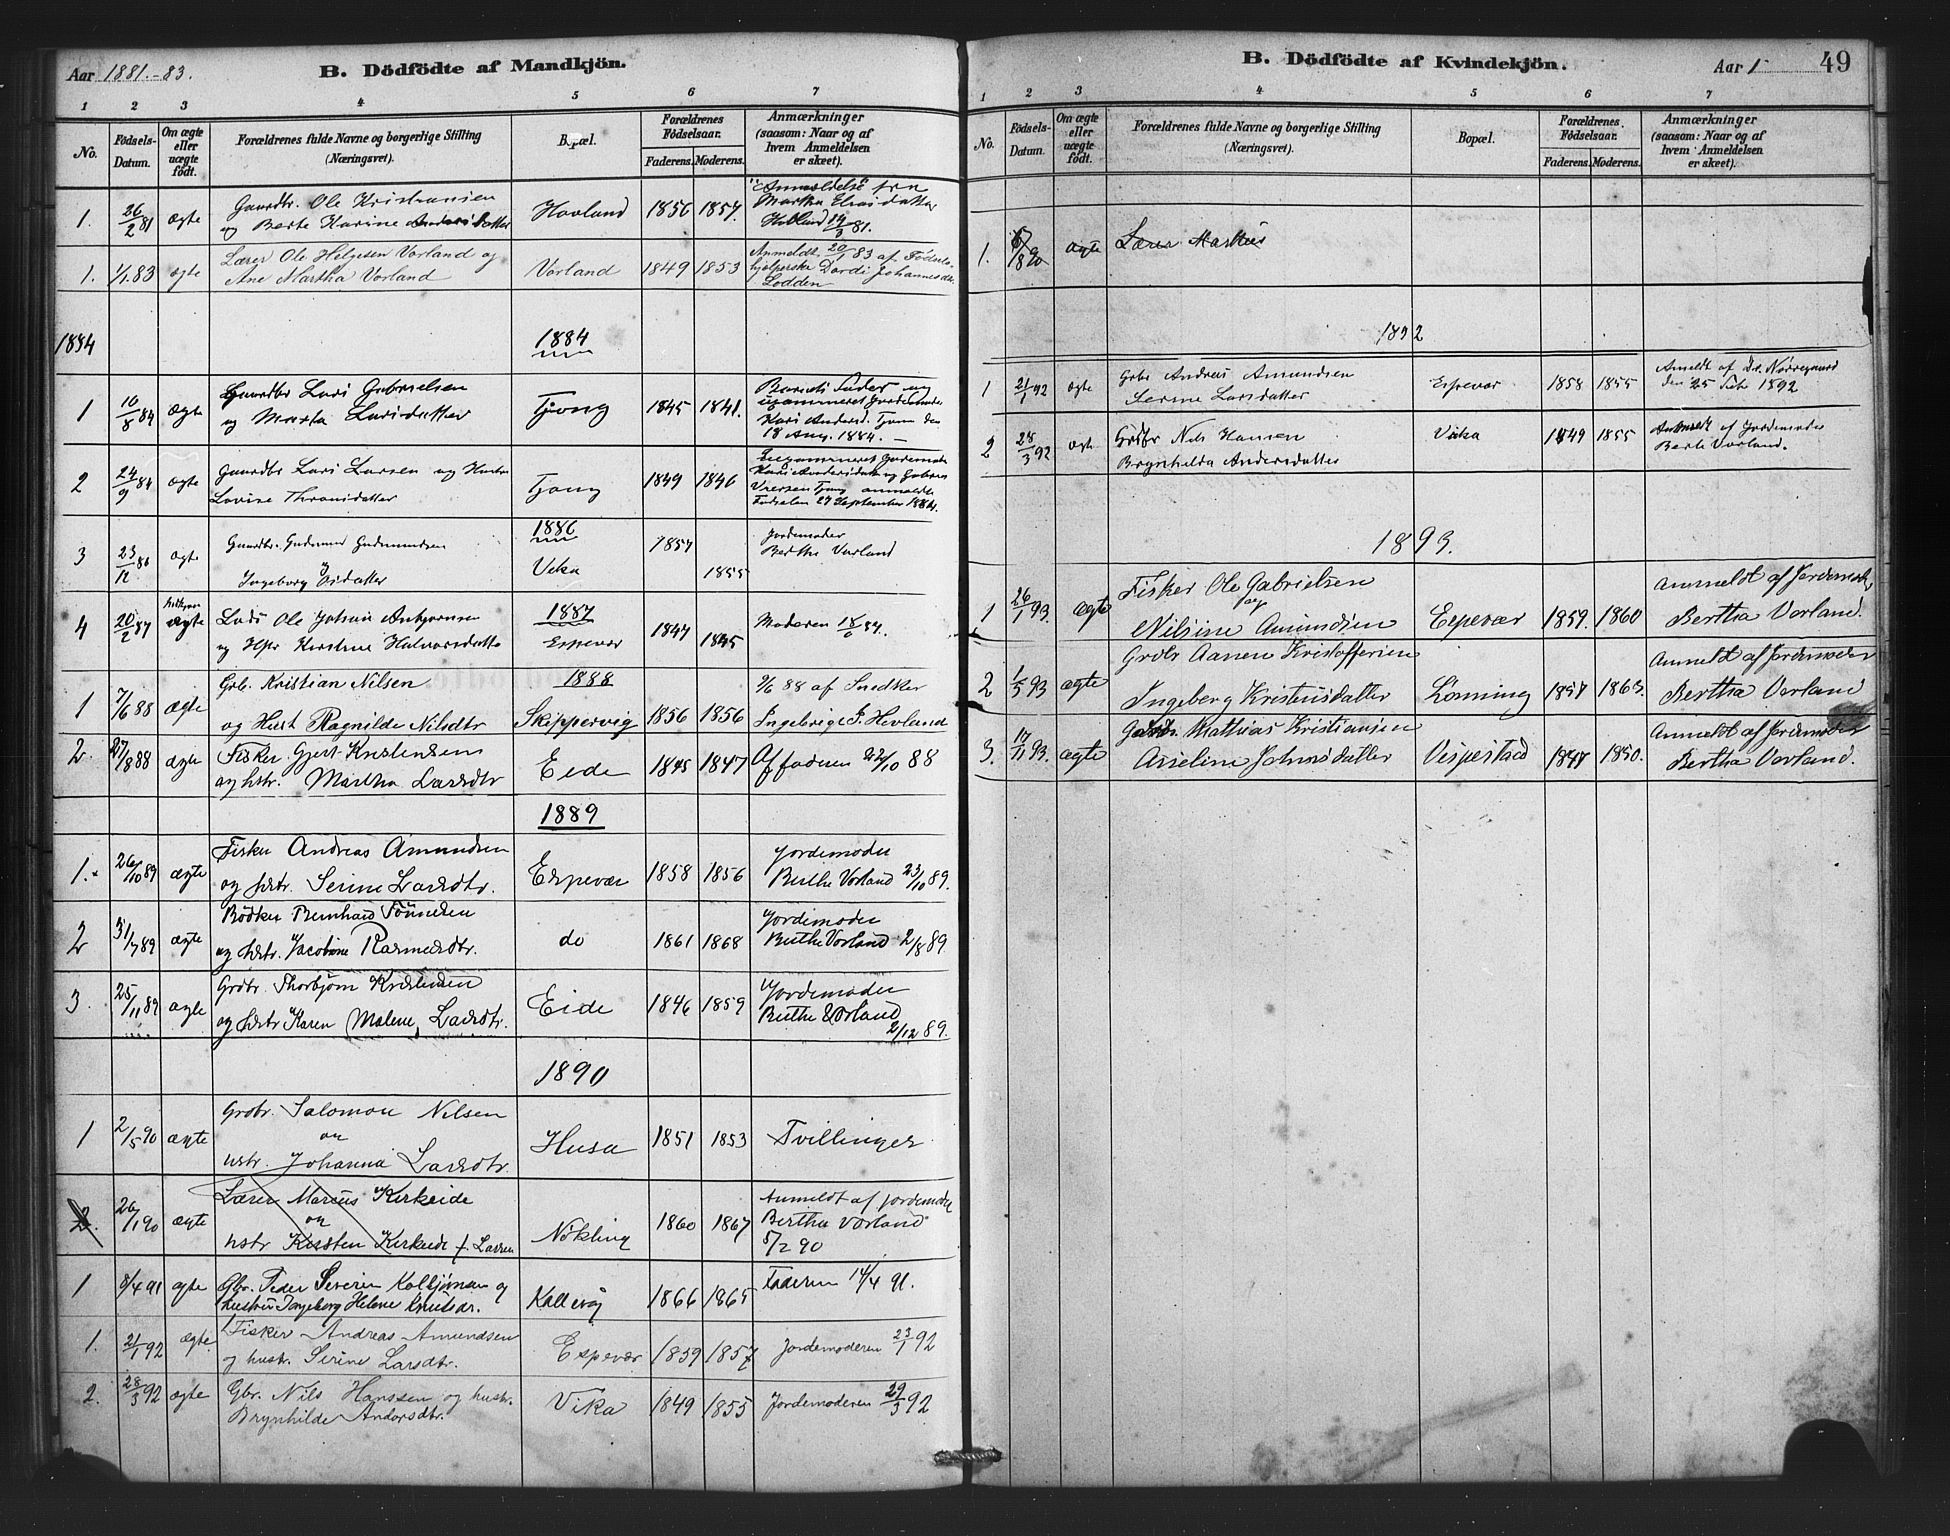 Aar 1881.-83.
B. Dödfödte af Mandkjön.
1 2 3 4 5 6 7
No.
Födsels-Datum.
Om ægte eller uægte födt.
Forældrenes fulde Navne og borgerlige Stilling (Næringsvei).
Bopæl.
Forældrenes Födselsaar.
Faderens. Moderens.
Anmærkninger (saasom: Naar og af hvem Anmeldelsen er skeet).
1. 26/2 81 ægte Gaardbr. Ole Kristiansen Hovland 1856 1857. "Anmeldelse" fra
og Berte Karine Martha Eliasdatter
19/3 81.
1. 1/1 83 ægte Lærer Ole Helgesen Vorland og Vorland 1849 1853 Anmeldt 20/1 83 af Fødsels-
Ane Martha Vorland hjælperske Dordi Johannesdtr.
Lodden
1884 1884
1 10/8 84 ægte Gaardbr Lars Gabrielsen Tjong 1845 1841. Barnets Fader og
og Marta Larsdatter uexamineret Jordemoder
Kari Andersd. Tjong den
18 Aug. 1884. –
2 24/9 84 ægte Gaardbr Lars Larsen og Hustru Tjong 1849 1846 Uexamineret Jordemoder
Lovise Thronsdatter Kari Andersdatter og
Tjong anmeldte
Fødselen 27 September 1884.
1886
3 23/12 86 ægte Gaardbr. Gudmund Gudmundsen Vika 1857 1855 Jordemoder
Ingeborg Berthe Vorland
1887
4 20/2 87 ægte Lods Ole Johan Espevær 1847 1845 Moderen 18/6 87.
og Hstr Kirstine Halvorsdatter
1888
1 7/6 88 ægte Grb. Kristian Nilsen Skippervig 1856 1856 9/6 88 af Snedker
og Hust Ragnilde Nilsdtr Ingebrigt J. Hovland
2. 27/8 88 ægte Fisker Gjert Kristensen Eide 1845 1847 Af faderen 22/10 88
og hstr. Martha Larsdtr
1889
1. 26/10 89 ægte Fisker Andreas Amundsen Espevær 1858 1856 Jordemoder
og hstr. Serine Larsdtr. Berthe Vorland 23/10 89.
2 31/7 89 ægte Bødker Bernhard Tönnesen do 1861 1868 Jordemoder
og hstr. Jacobine Rasmusdtr. Berthe Vorland 2/8 89
3. 25/11 89 ægte Grdbr. Thorbjörn Kristensen Eide 1846 1859 Jordemoder
og hstr Karen Malene Larsdtr. Berthe Vorland
2/12 89.
1890
1 2/5 90 ægte Grdbr. Salomon Nilsen Husa 1851 1853 Tvillinger
og
hstr. Johanna Larsdtr.
2. 26/1 90 ægte Lærer Marcus Kirkeide Nökling 1860 1867 Anmeldt af jordemoder
og Bertha Vorland
hstr Kirsten Kirkeide f. Larsen 5/2 90
1 8/4 91 ægte Gbr. Peder Severin Kolbjörnsen og Kallevåg 1866 1865 Faderen 14/4 91.
hustru Ingeborg Helene Knutsdr.
1. 21/1 92 ægte Fisker Andreas Amundsen Espevær 1859 1857 Jordemoderen 23/1 92
og hustr. Serine Larsdtr.
2. 28/3 92 ægte Gbr. Nils Hanssen og hustr. Vika 1849 1855 Jordemoderen 29/3 92
Brynhilde Andersdtr.
B. Dödfödte af Kvindekjön.
Aar 1 49
1 2 3 4 5 6 7
No.
Födsels-Datum.
Om ægte eller uægte födt.
Forældrenes fulde Navne og borgerlige Stilling (Næringsvei).
Bopæl.
Forældrenes Födselsaar.
Faderens. Moderens.
Anmærkninger (saasom: Naar og af hvem Anmeldelsen er skeet).
1. ægte Lærer Markus
1892
1 21/1 92 ægte Gbr Andreas Amundsen Espevær 1858 1855 Anmeldt af Nørregaard
Serine Larsdatter den 25 1892
2 28/3 92 ægte Grdbr Nils Hansen Vika 1849 1855 Anmeldt af Jordemoder
Brynhilda Andersdatter Berte Vorland.
1893.
1 26/1 93 ægte Fisker Ole Gabrielsen Espevær 1859. 1860 Anmeldt af Jordemoder
og
Nilsine Amundsen Bertha Vorland.
2 1/5 93 ægte Grdbr Aanen Kristoffersen Lönning 1857 1863. Anmeldt af Jordemoder
Ingeberg Kristensdatter Bertha Vorland
3. 17/11 93. ægte Grdbr. Mathias Kristiansen Vespestad 1847 1850. Anmeldt af Jordemoder
Asseline Johnsdatter Bertha Vorland.